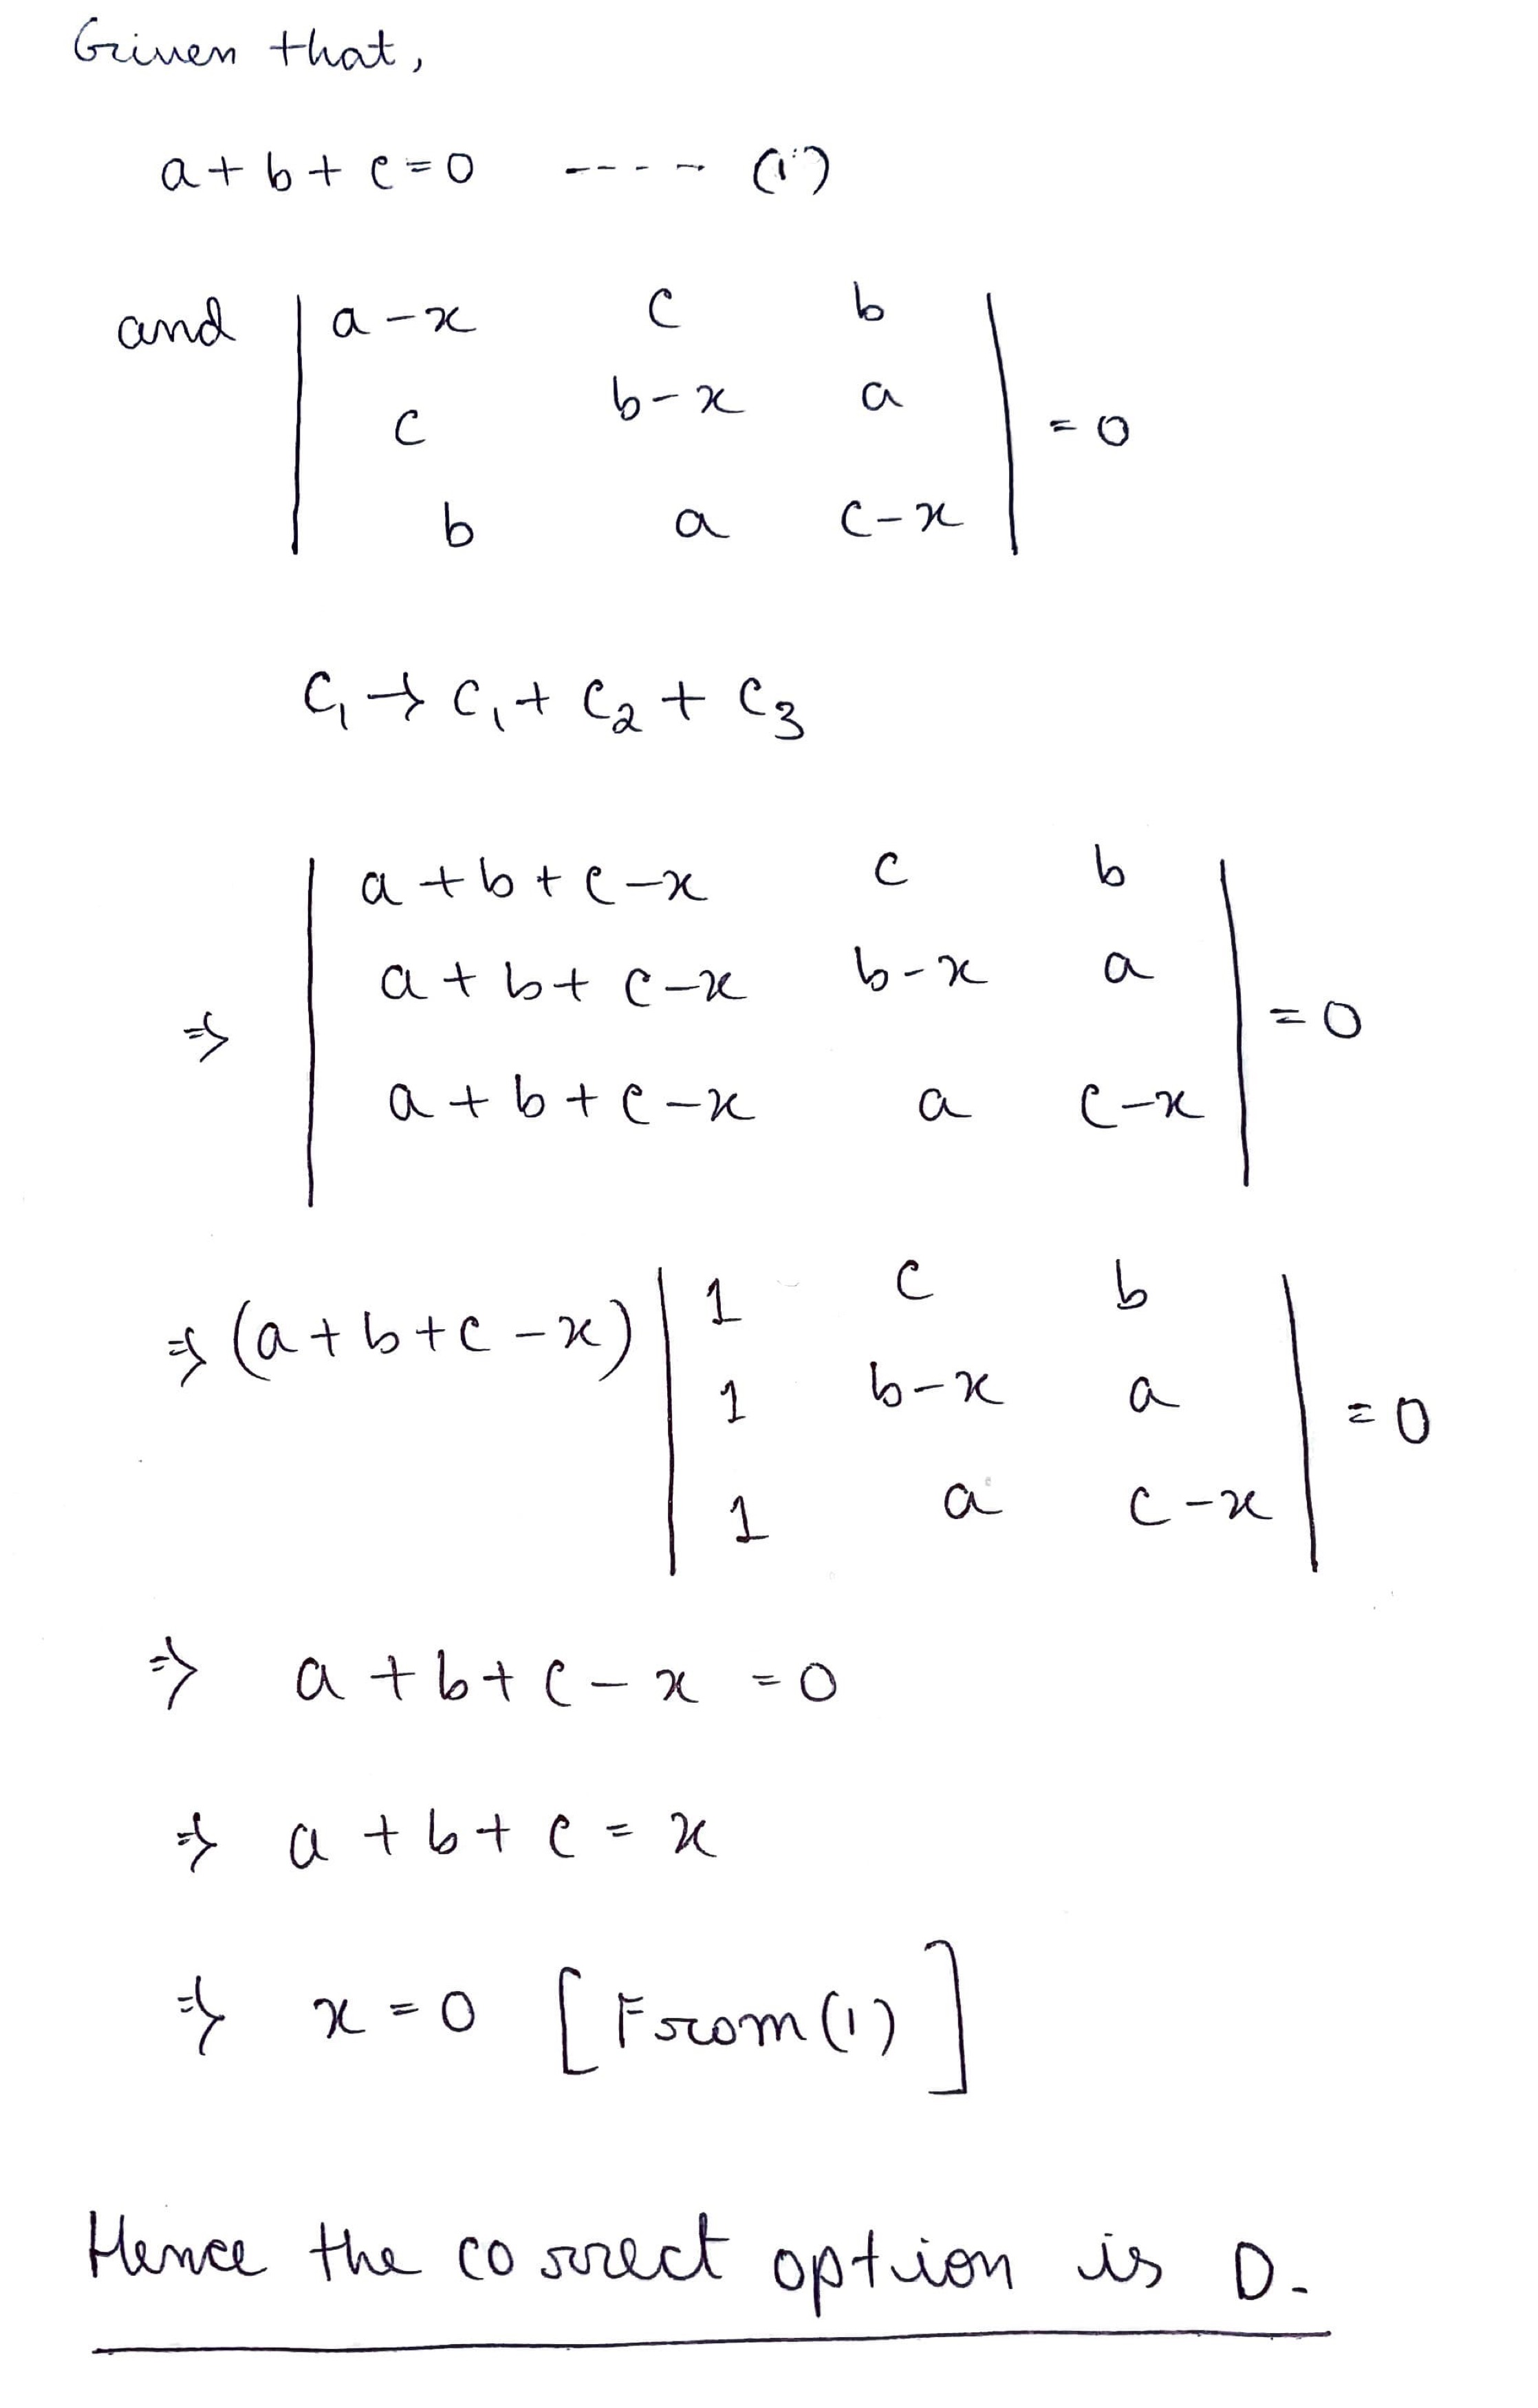 Given that,
a + b + c = 0 ----- (i)
and | a-x c b |
| c b-x a | = 0
| b a c-x |
C₁ → C₁ + C₂ + C₃
| a+b+c-x c b |
⇒ | a+b+c-x b-x a | = 0
| a+b+c-x a c-x |
⇒ (a+b+c-x) | 1 c b |
| 1 b-x a | = 0
| 1 a c-x |
⇒ a+b+c-x = 0
⇒ a+b+c = x
⇒ x = 0 [From (1)]
Hence the correct option is D.